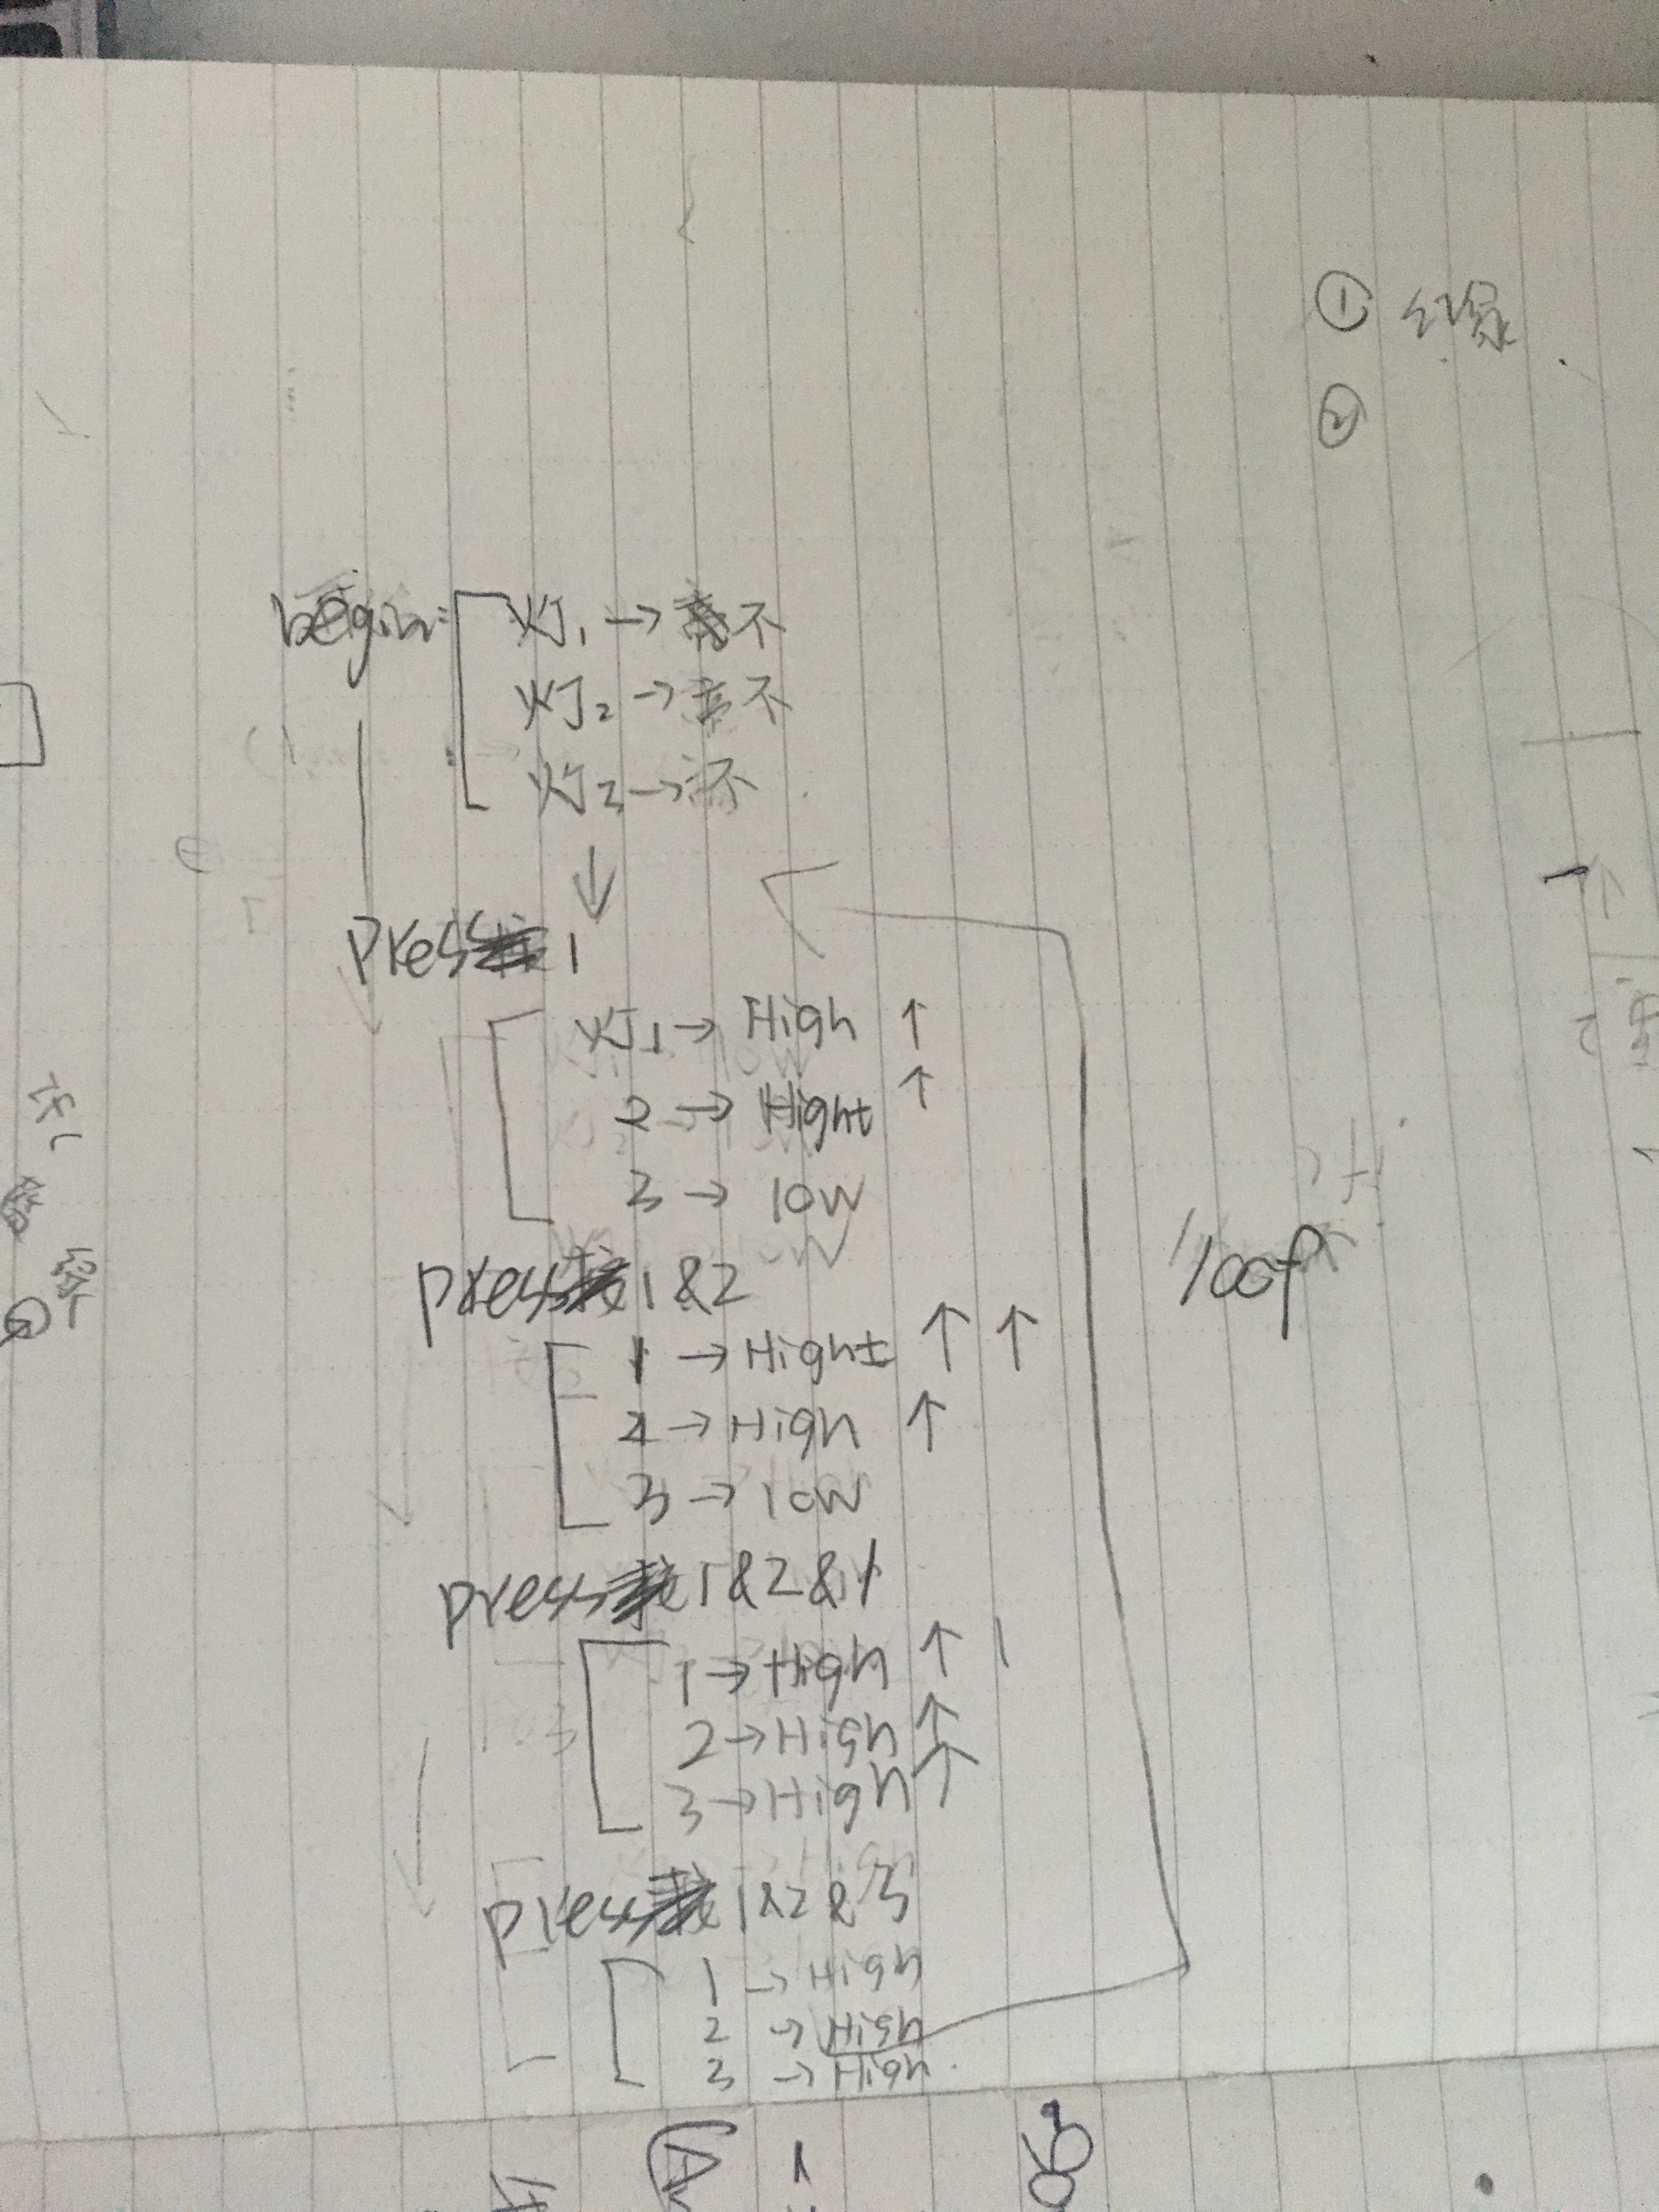 ① 红绿
②
begin:
灯1 → 不
灯2 → 不
灯3 → 不
press 1
灯1 → High ↑
2 → Hight ↑
3 → low
press 1&2
1 → Hight ↑ ↑
2 → High ↑
3 → low
loop
press 1&2&1
1 → High ↑
2 → High ↑
3 → High ↑
press 1&2&3
1 → High
2 → High
3 → High